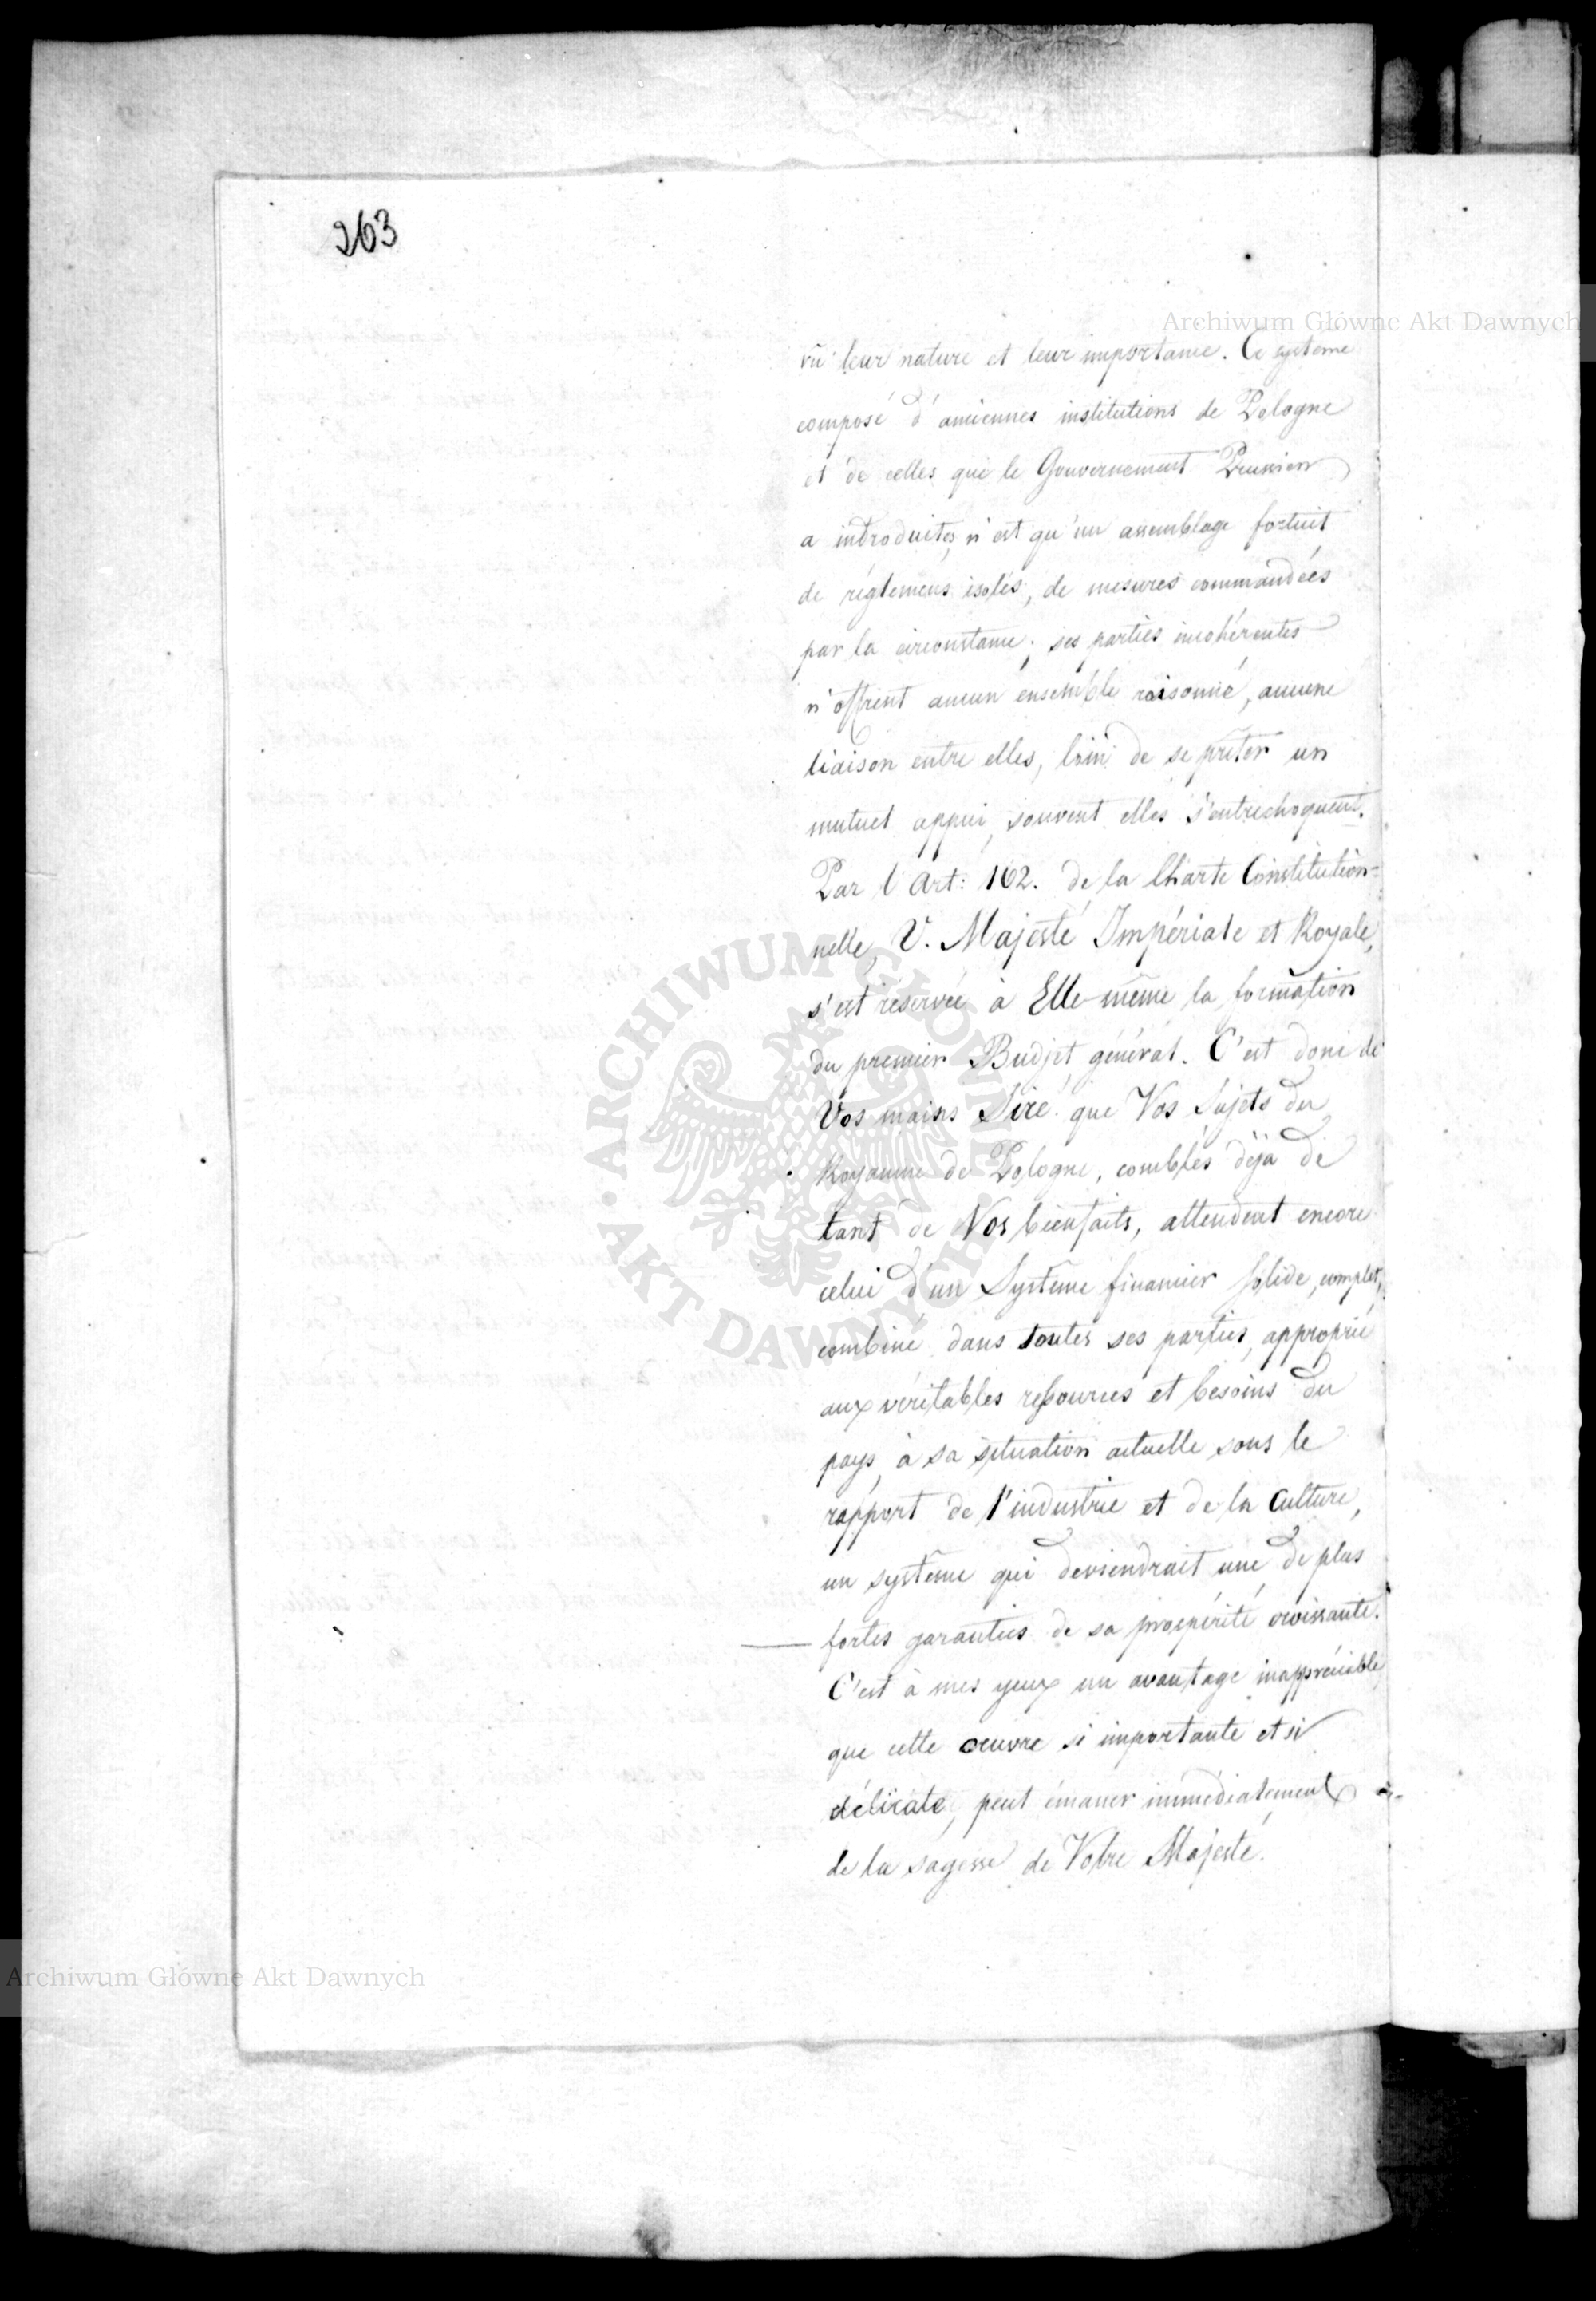 263
Archiwum Główne Akt Dawnych
vû leur nature et leur importance. Ce systeme
composé d'anciennes institutions de Pologne
et de celles que le Gouvernement Prussien
a introduites, n'est qu'un assemblage fortuit
de réglemens isolés, de mesures commandées
par la circonstance; ses parties incohérentes
n'offrent aucun ensemble raisonné, aucune
liaison entre elles, loin de se prêter un
mutuel appui, souvent elles s'entrechoquent.
Par l'Art: 162. de la Charte Constitution=
nelle, V. Majesté Impériale et Royale,
s'est reservée à Elle-même la formation
du premier Budjet général. C'est donc de
Vos mains Sire que Vos Sujets du
Royaume de Pologne, comblés déja de
tant de Vos bienfaits, attendent encore
celui d'un Systême financier solide, complet,
combiné dans toutes ses parties, approprié
aux véritables ressources et besoins du
pays, à sa situation actuelle sous le
rapport de l'industrie et de la Culture,
un systême qui deviendrait une de plus
fortes garanties de sa prospérité croissante.
C'est à mes yeux un avantage inappréciable
que cette oeuvre si importante et si
délicate, peut émaner immédiatement
de la sagesse de Votre Majesté.
ARCHIWUM GŁÓWNE · AKT DAWNYCH ·
Archiwum Główne Akt Dawnych